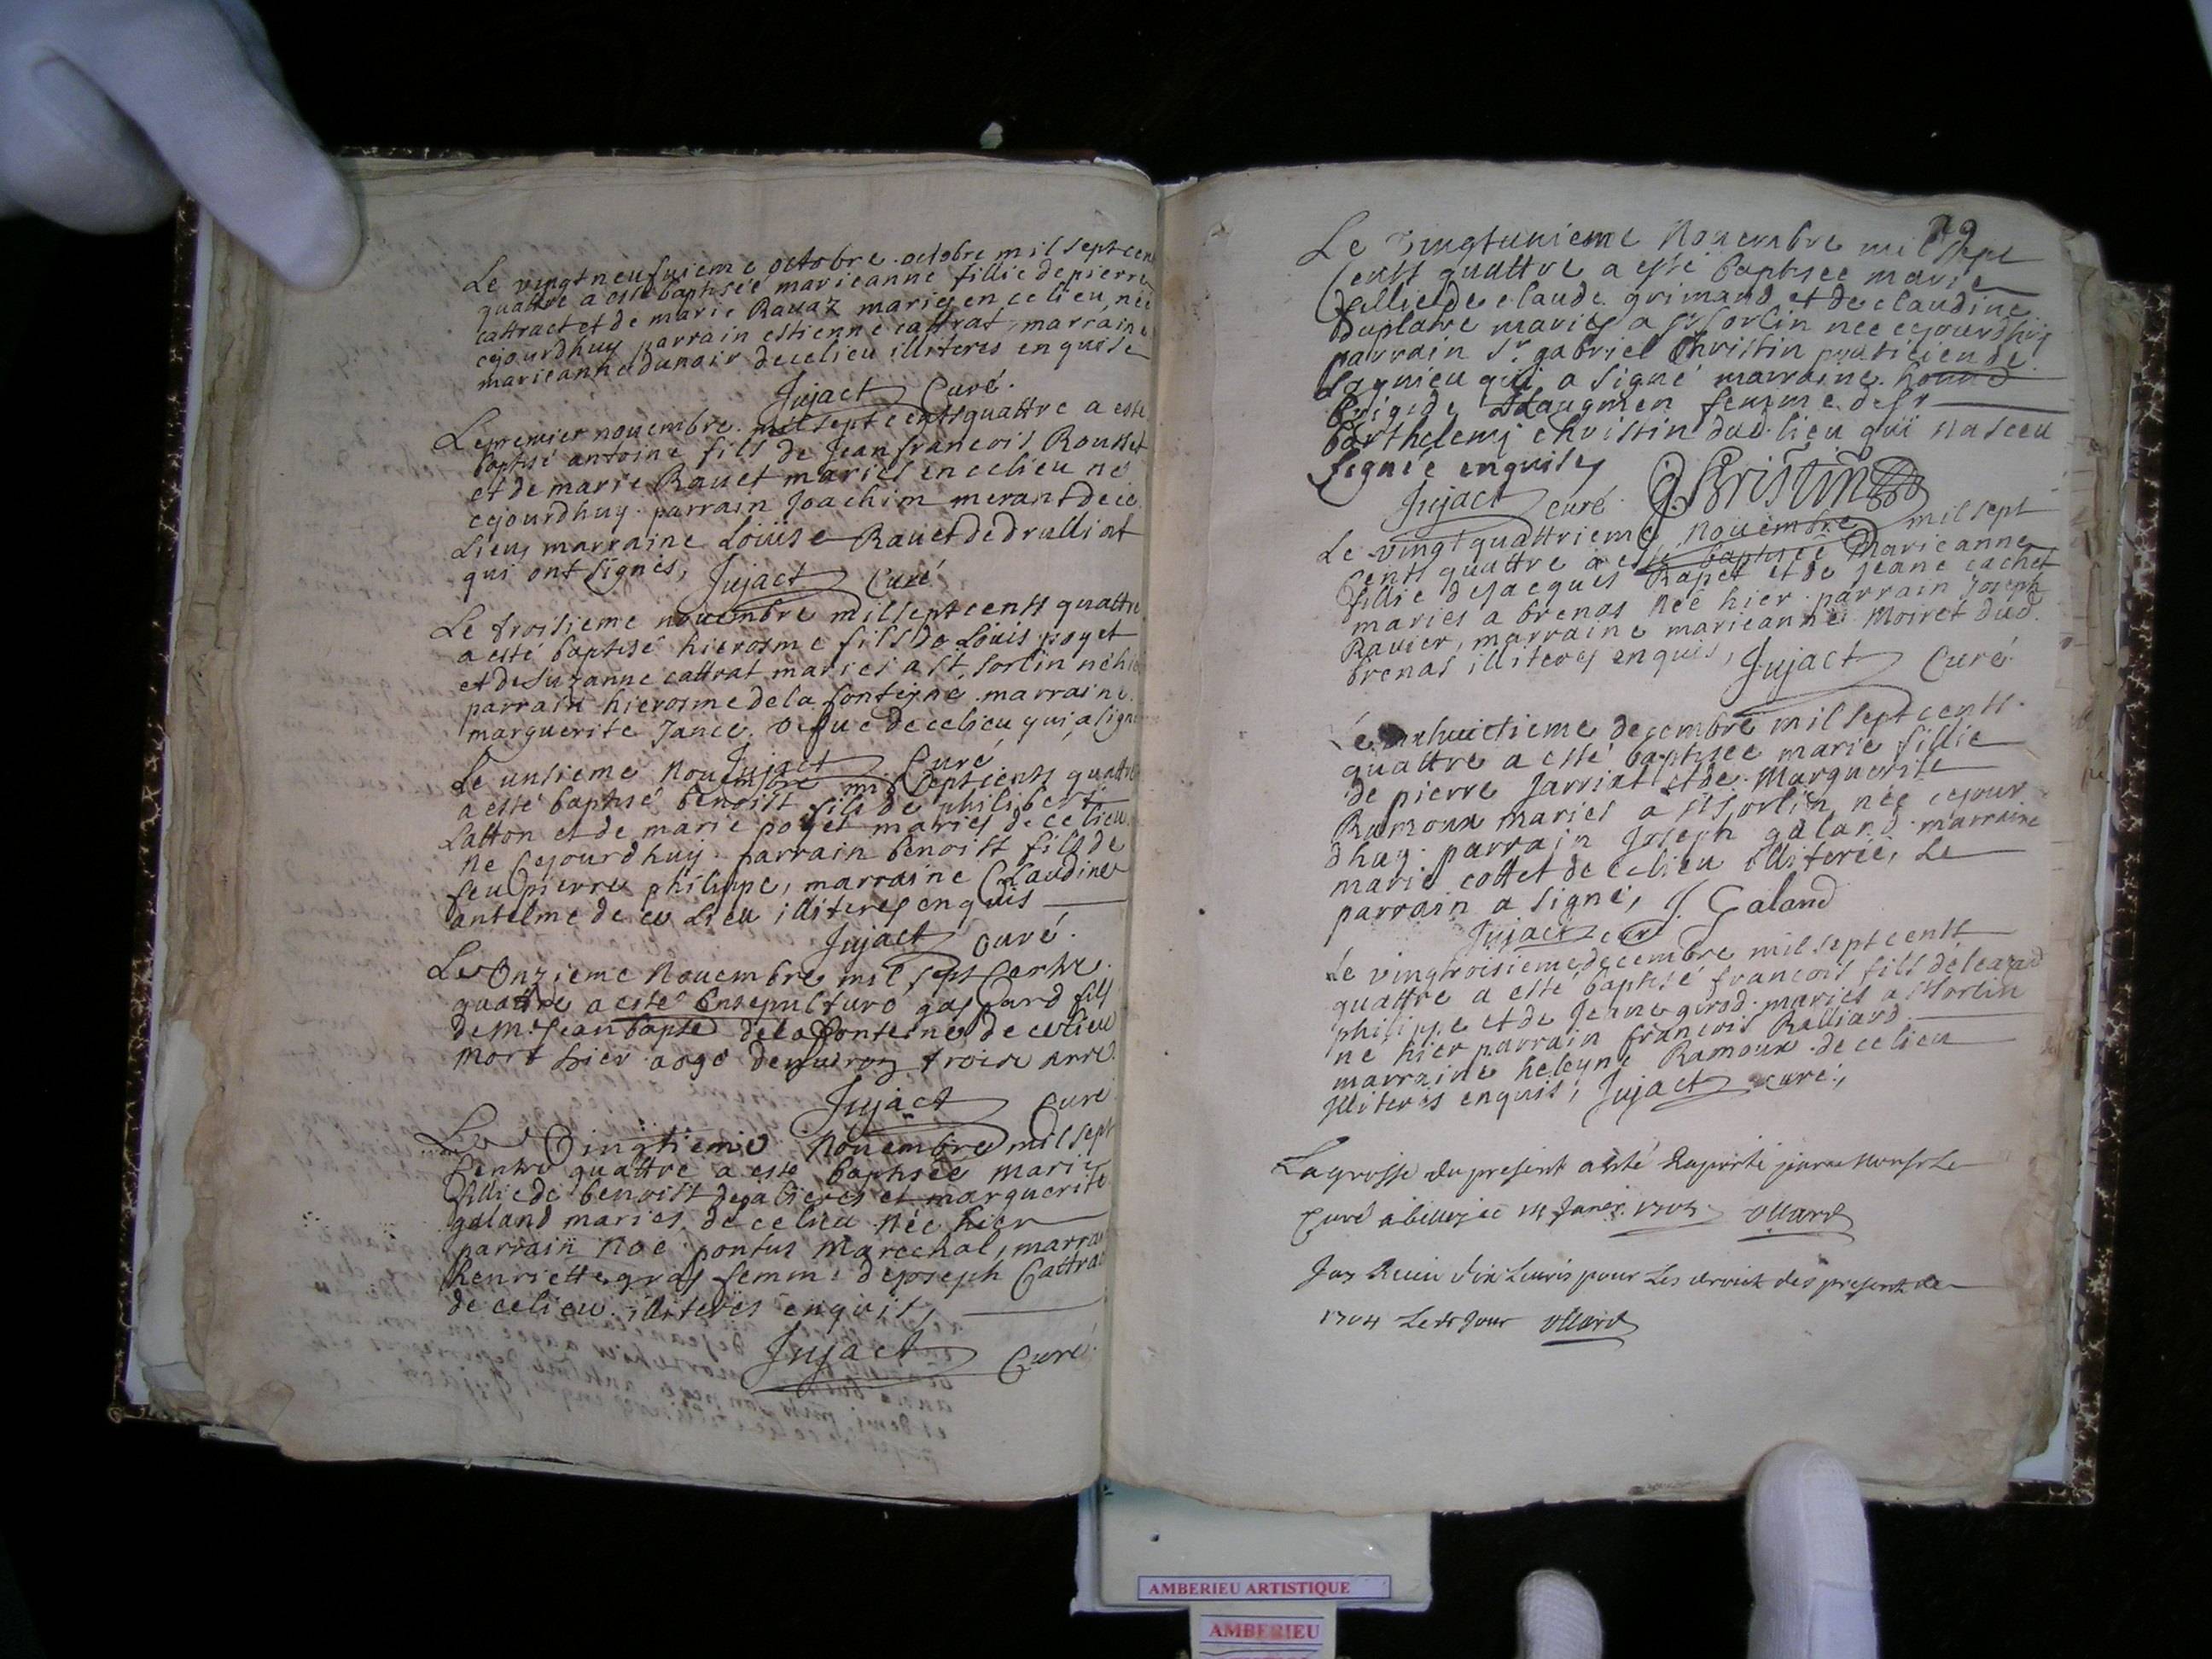 Le vingt neufuieme octobre octobre mil sept cen
quattre a esté baptisée marieanne fillie de pierre
cattract et de marie Rauaz mariés en ce lieu née
cejourdhuy parrain estienne cattrat, marraine
marieanne dunoir de ce lieu illiteres enquise
Jujact Curé.
Le premier nouembre mil sept cents quattre a esté
baptisé antoine fils de Jean francois Rousset
et de marie Rauet mariés en ce lieu né
cejourdhuy parrain Joachim merant de ce
Lieu, marraine Louise Rauet de drulliat
qui ont signés, Jujact Curé
Le troisieme nouembre mil sept cents quattre
a esté baptisé hierosme fils de Louis poyet
et de Suzanne cattrat mariés a st. sorlin né hie
parrain hierosme de la fonteyne marraine
marguerite Jance de ce lieu qui a signé
Jujact Curé
Le unsieme Nouembre mil sept cents quattre
a esté baptisé benoist fils de philibert
Latton et de marie poyet mariés de ce lieu
né Cejourdhuy parrain benoist fils de
feu pierre philippe, marraine Claudine
antelme de ce Lieu illiteres enquis
Jujact Curé.
Le Onzieme Nouembre mil sept Cents
quattre a esté Ensepulturé gaspard fils
de Mr. Jean bapte dela fonteine de ce lieu
mort hier aagé denuiron trois ans
Jujact Curé
Le Vingtieme Nouembre mil sept
Cents quattre a esté baptisée Marie
fillie de benoist degalieres et marguerite
galand mariés de ce lieu née hier
parrain Noe pontus Marechal, marra
henriette gras femme de joseph Cattrac
de ce lieu illiteres enquis,
Jujact Curé.
Le vingtunieme Nouembre mil sept
Cents quattre a esté baptisée marie
fillie de claude grimand et de claudine
Duplatre mariés a st sorlin née cejourdhuy
parrain Sr. gabriel Christin praticien de
Lagnieu qui a signé marraine
Brigide femme de Sr
barthelemj christin dud. lieu qui na sceu
signée enquise
Jujact curé G. Christin
Le vingtquattrieme Nouembre mil sept
Cents quattre a esté baptisée Marieanne
fillie de Jacques Rapet et de Jeane cachet
mariés a brenas née hier parrain Joseph
Rauier, marraine marieanne Moiret dud.
brenas illiteres enquis, Jujact Curé.
huictieme decembre mil sept cents
quattre a esté baptisée marie fillie
de pierre Jarriat et de Marguerite
Ramoux mariés a st sorlin née cejour
dhuy parrain Joseph galand marraine
marie cottet de ce lieu illiterée, Le
parrain a signé, J. Galand
Jujact curé
Le vingtroisieme decembre mil sept cents
quattre a esté baptisé francois fils de
philippe et de Jeane girod mariés a st sorlin
né hier parrain francois Ralliard
marraine heleyne Ramoux de ce lieu
Illiterés enquis, Jujact curé,
La grosse du present a esté Raporté par Monsr Le
Curé a belley ce Janer 1705 ollard
Jay Receu dix Liures pour Les droict des present de
1704 Led Jour ollard
AMBERIEU ARTISTIQUE
AMBERIEU